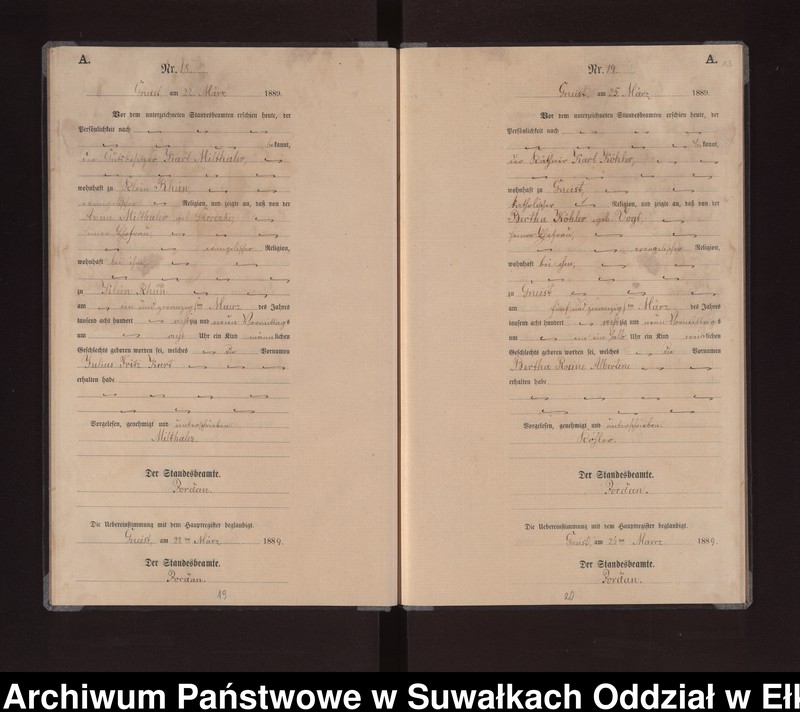 A.
Nr. 18.
Gneist am 22. März 1889.
Vor dem unterzeichneten Standesbeamten erschien heute, der
Persönlichkeit nach
bekannt,
der Karl Milthaler,
wohnhaft zu Klein Rhun,
evangelischer Religion, und zeigte an, daß von der
Anna Milthaler geb.
seiner Ehefrau,
evangelischer Religion,
wohnhaft bei ihm,
zu Klein Rhun
am ein und zwanzigsten März des Jahres
tausend acht hundert achtzig und neun Vormittags
um acht Uhr ein Kind männlichen
Geschlechts geboren worden sei, welches die Vornamen
Julius Fritz
erhalten habe
Vorgelesen, genehmigt und unterschrieben.
Milthaler.
Der Standesbeamte.
Pordan.
Die Uebereinstimmung mit dem Hauptregister beglaubigt.
Gneist, am 22ten März 1889.
Der Standesbeamte.
Pordan.
19
A.
Nr. 19.
Gneist am 25. März 1889.
Vor dem unterzeichneten Standesbeamten erschien heute, der
Persönlichkeit nach
bekannt,
der Käthner Karl Köhler,
wohnhaft zu Gneist,
katholischer Religion, und zeigte an, daß von der
Bertha Köhler geb. Vogt,
seiner Ehefrau,
evangelischer Religion,
wohnhaft bei ihm,
zu Gneist
am fünf und zwanzigsten März des Jahres
tausend acht hundert achtzig und neun Vormittags
um ein halb Uhr ein Kind weiblichen
Geschlechts geboren worden sei, welches die Vornamen
Bertha Rosine Albertine
erhalten habe
Vorgelesen, genehmigt und unterschrieben.
Köhler.
Der Standesbeamte.
Pordan.
Die Uebereinstimmung mit dem Hauptregister beglaubigt.
Gneist, am 25ten März 1889.
Der Standesbeamte.
Pordan.
20
Archiwum Państwowe w Suwałkach Oddział w Ełk